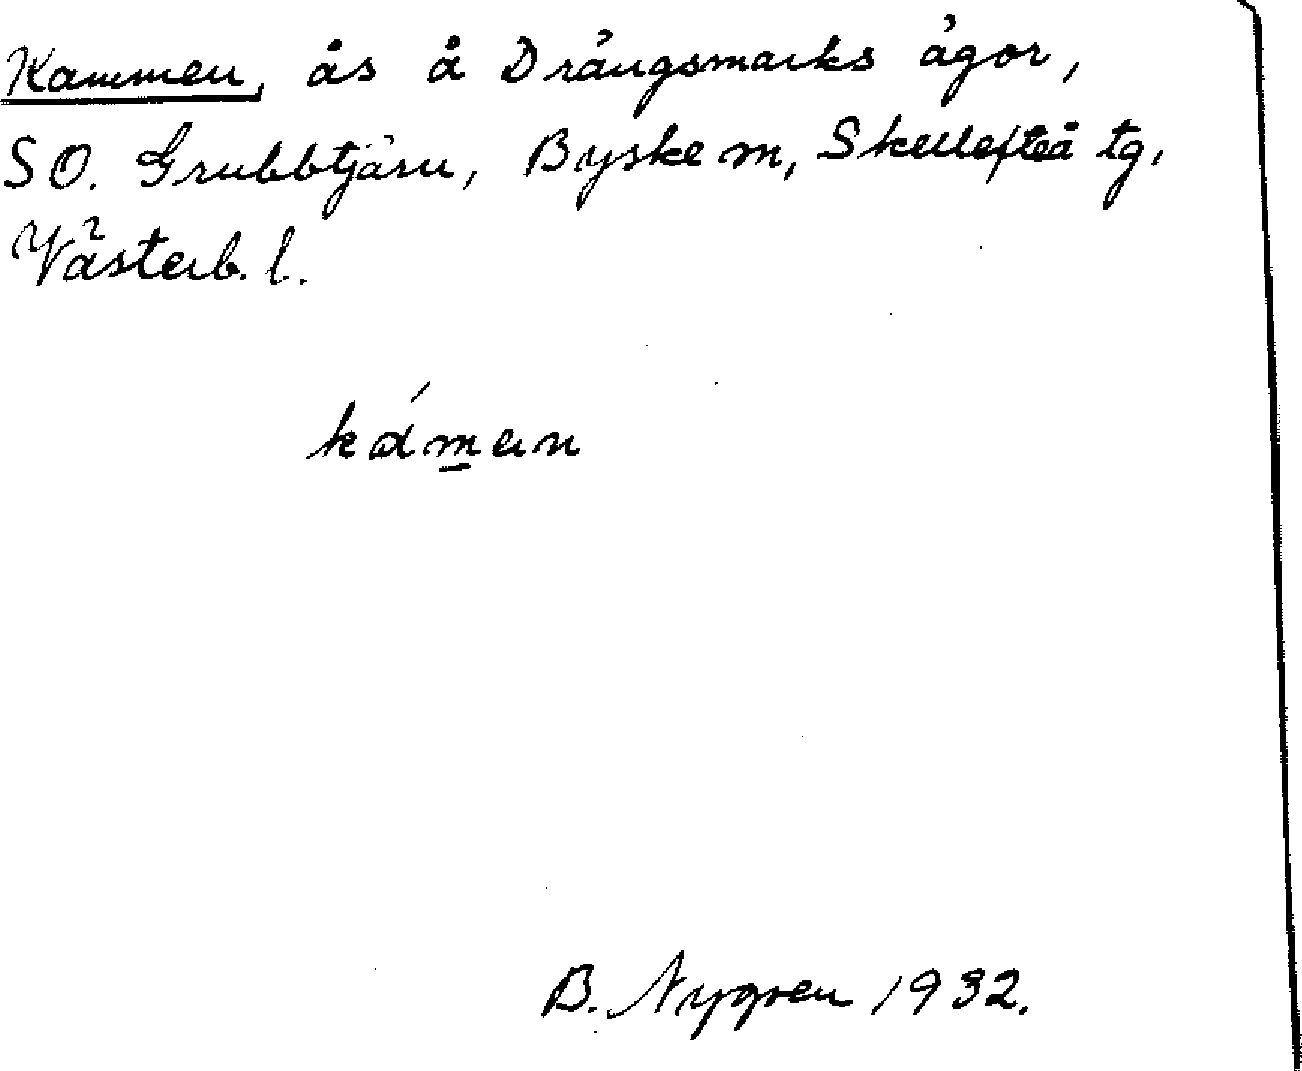 Kammen, ås å Drängsmarks ägor,
SO. Grubbtjärn, Byske m, Skellefteå tg,
Västerb. l.
kámen
B. Nygren 1932.